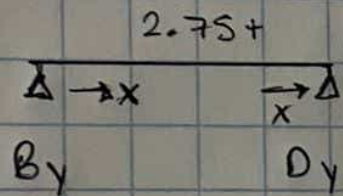 2.75t
x x
By Dy